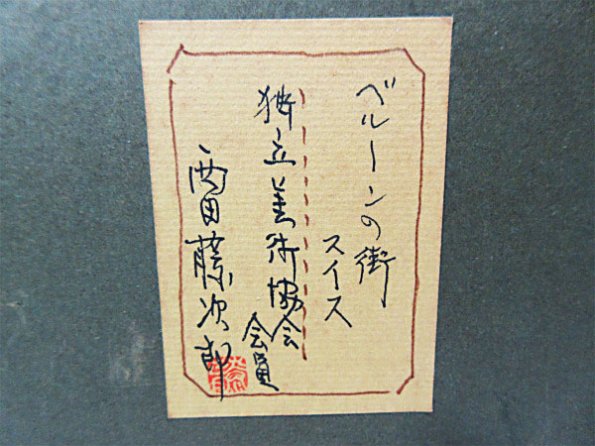 ベルーンの街
スイス
独立美術協会
会員
西田藤次郎